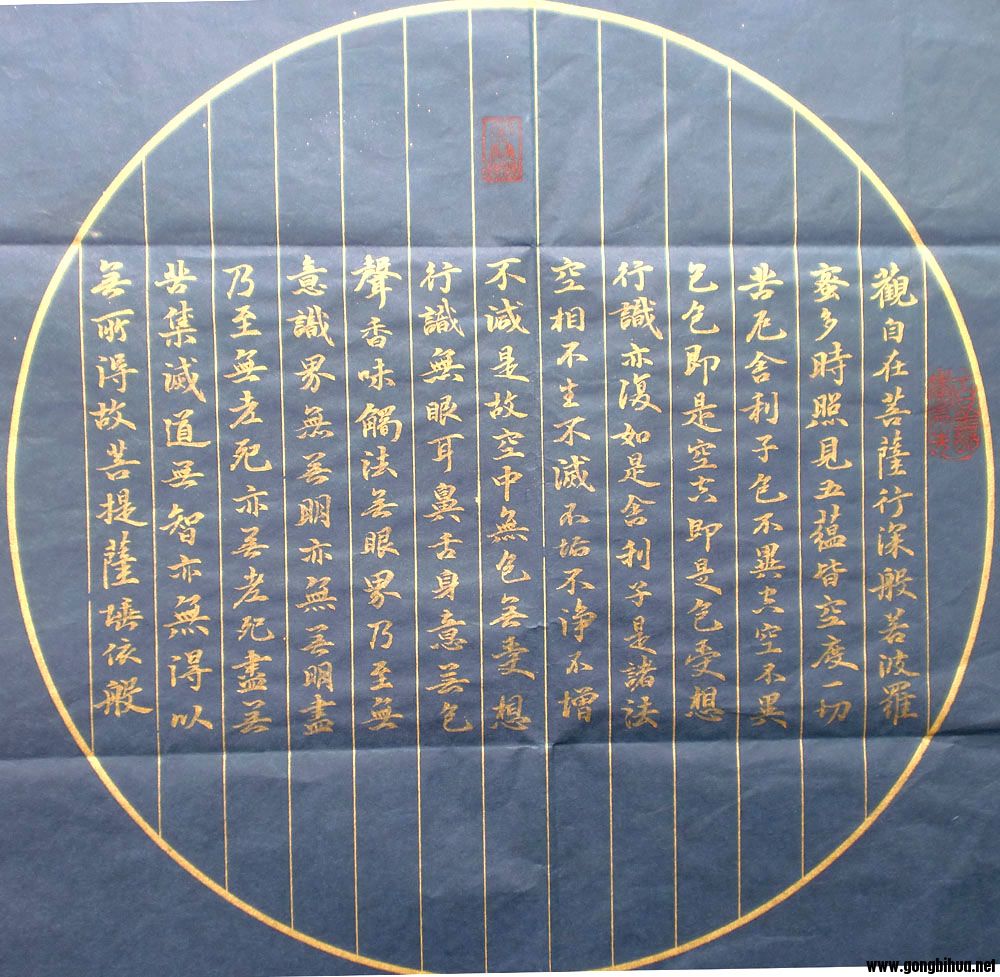 觀自在菩薩行深般若波羅
蜜多時照見五蘊皆空度一切
苦厄舍利子色不異空空不異
色色即是空空即是色受想
行識亦復如是舍利子是諸法
空相不生不滅不垢不淨不增
不減是故空中無色無受想
行識無眼耳鼻舌身意無色
聲香味觸法無眼界乃至無
意識界無無明亦無無明盡
乃至無老死亦無老死盡無
苦集滅道無智亦無得以
無所得故菩提薩埵依般
www.gongbihua.net